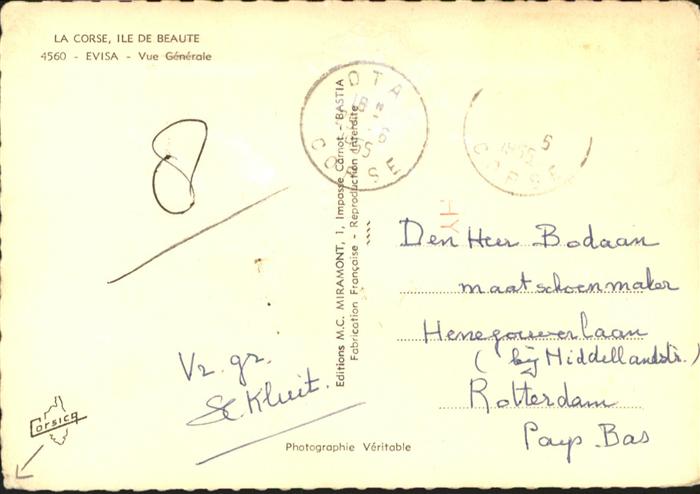 LA CORSE, ILE DE BEAUTE
4560 - EVISA - Vue Générale
8
OTA
CORSE
5
1955
CORSE
Editions M.C. MIRAMONT, 1, Impasse Carnot - BASTIA
Fabrication Française - Reproduction Interdite
HY
Den Heer Bodaan
maatschoenmaker
Henegouwerlaan
(bij Middellandstr.)
Rotterdam
Pays-Bas
Vr. gr.
Kluit.
Corsica
Photographie Véritable